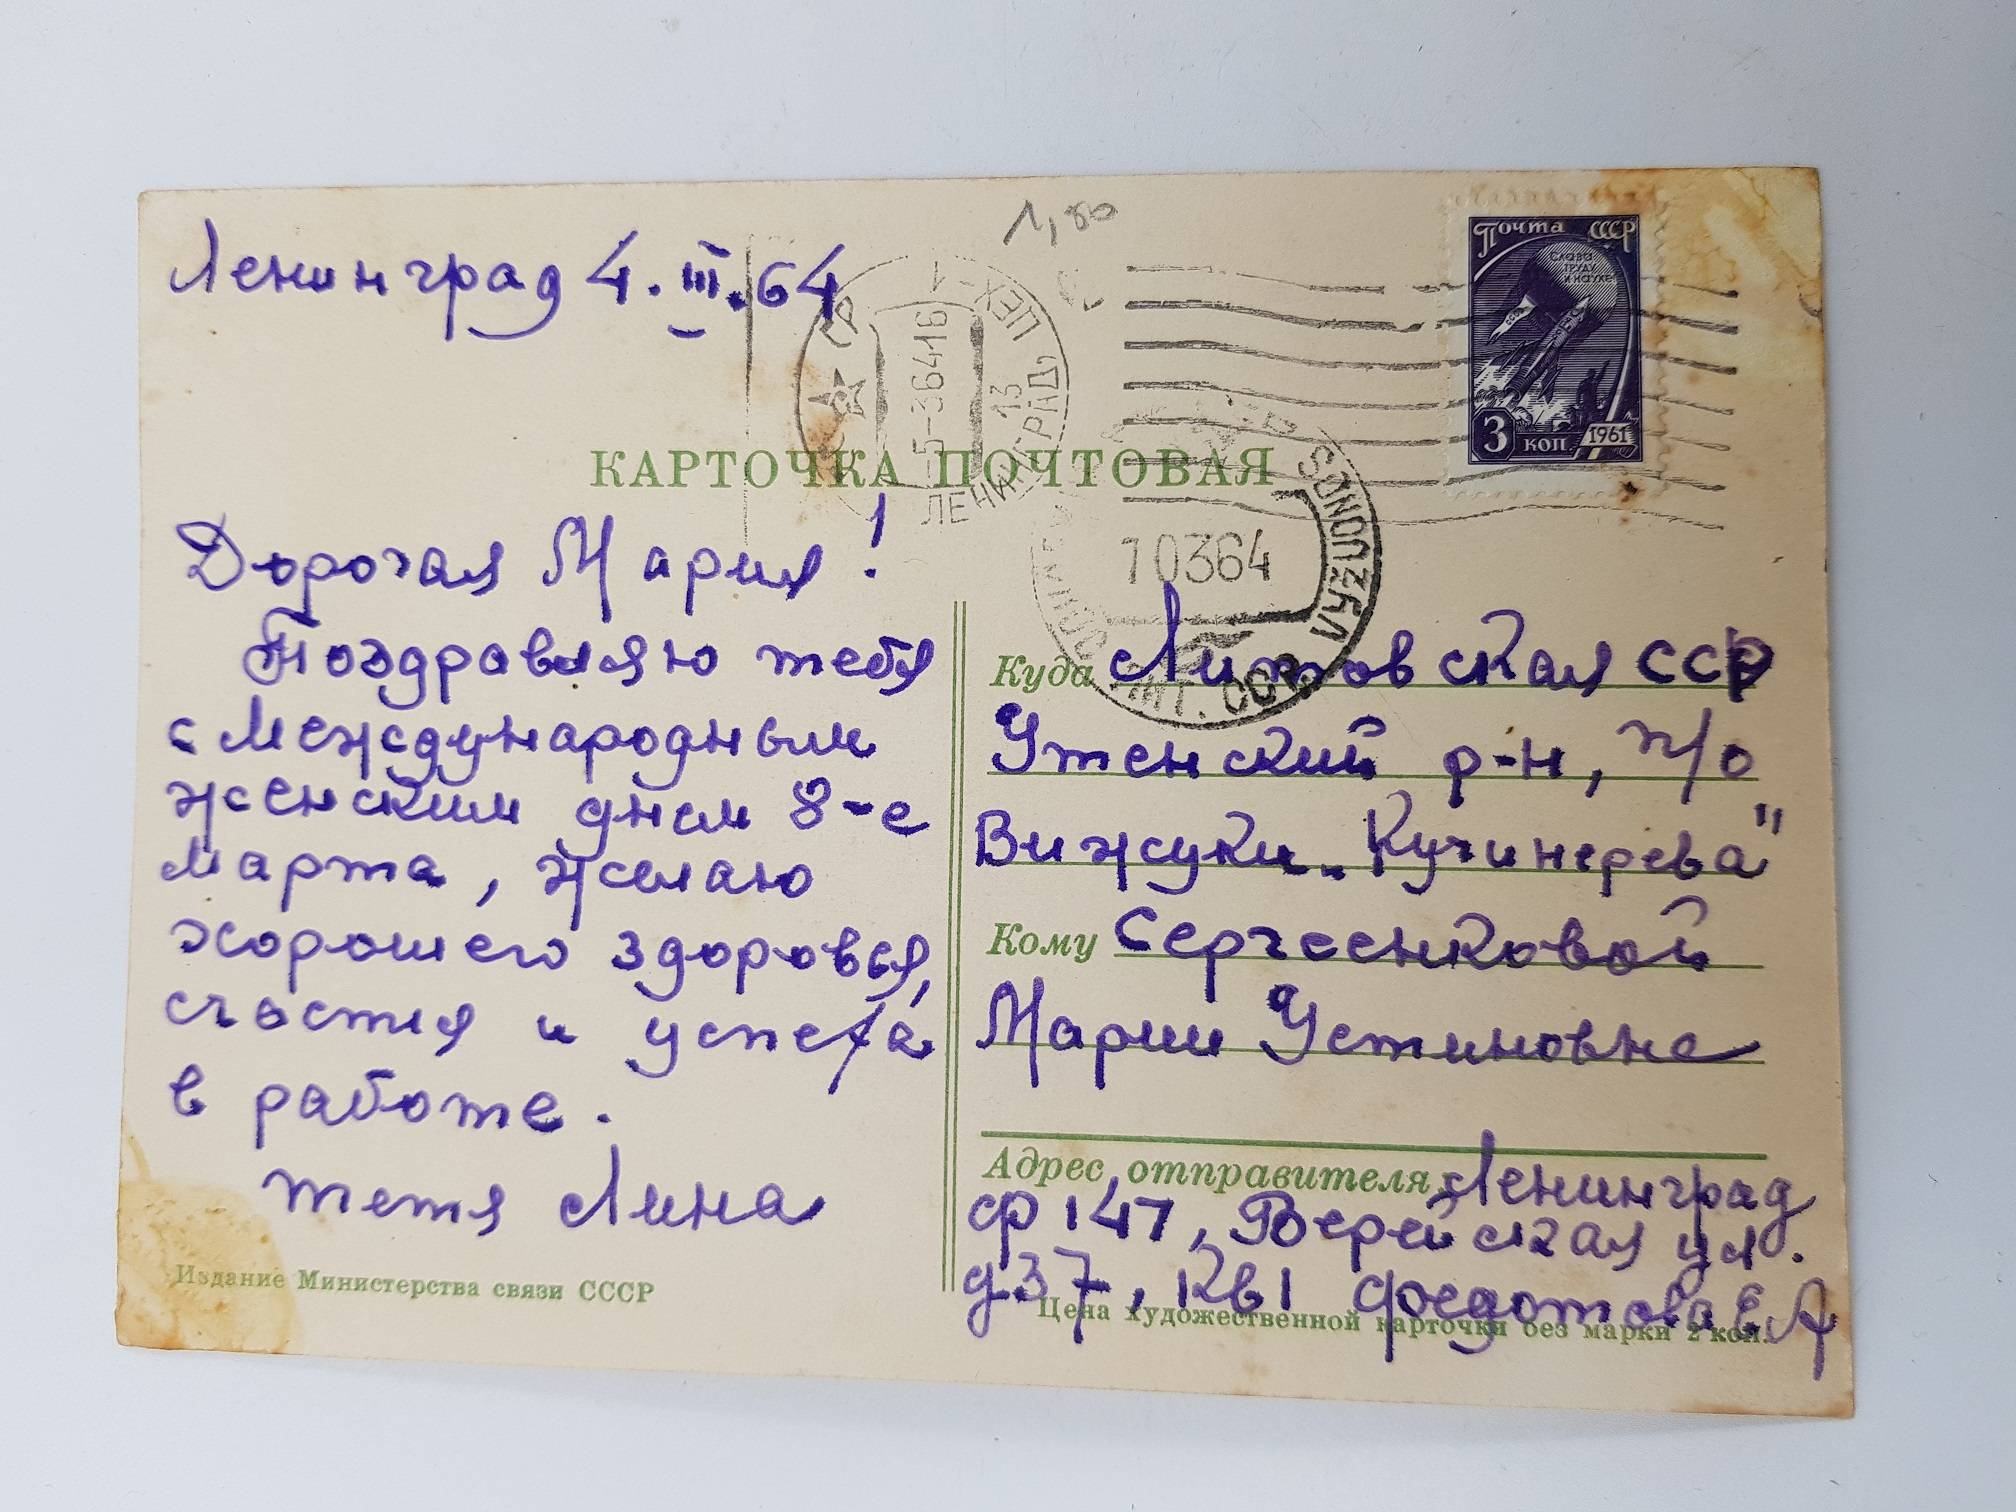 Ленинград 4.III.64
1,80
Почта СССР
СЛАВА
ТРУДУ
И НАУКЕ
3 коп. 1961
ЛЕНИНГРАД, 13
ЦЕХ-1
5-36416
КАРТОЧКА ПОЧТОВАЯ
VYŽUONOS
100364
ЛИТ. ССР
Дорогая Мария!
Поздравляю тебя
с Международным
женским днем 8-е
марта, желаю
хорошего здоровья,
счастия и успеха
в работе.
тетя Лина
Издание Министерства связи СССР
Куда Литовская ССР
Утенский р-н, п/о
Вижуки „Кучинерева"
Кому Сергеенковой
Марии Устиновне
Адрес отправителя: Ленинград
ф 147, Верейская ул.
д.37, кв 1 Федотова Е.А
Цена художественной карточки без марки 2 коп.